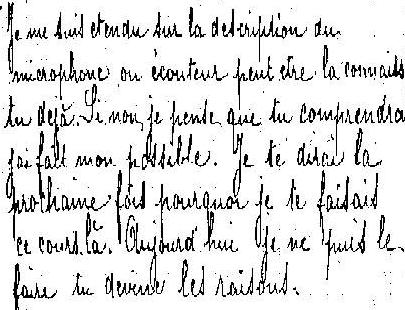 Je me suis etendu sur la description du
microphone ou écouteur peut etre la connais
tu dejà. Si non je pense que tu comprendra
j'ai fait mon possible. Je te dirai la
prochaine fois pourquoi je te faisais
ce cours là. Aujourd'hui je ne puis le
faire tu devine les raisons.